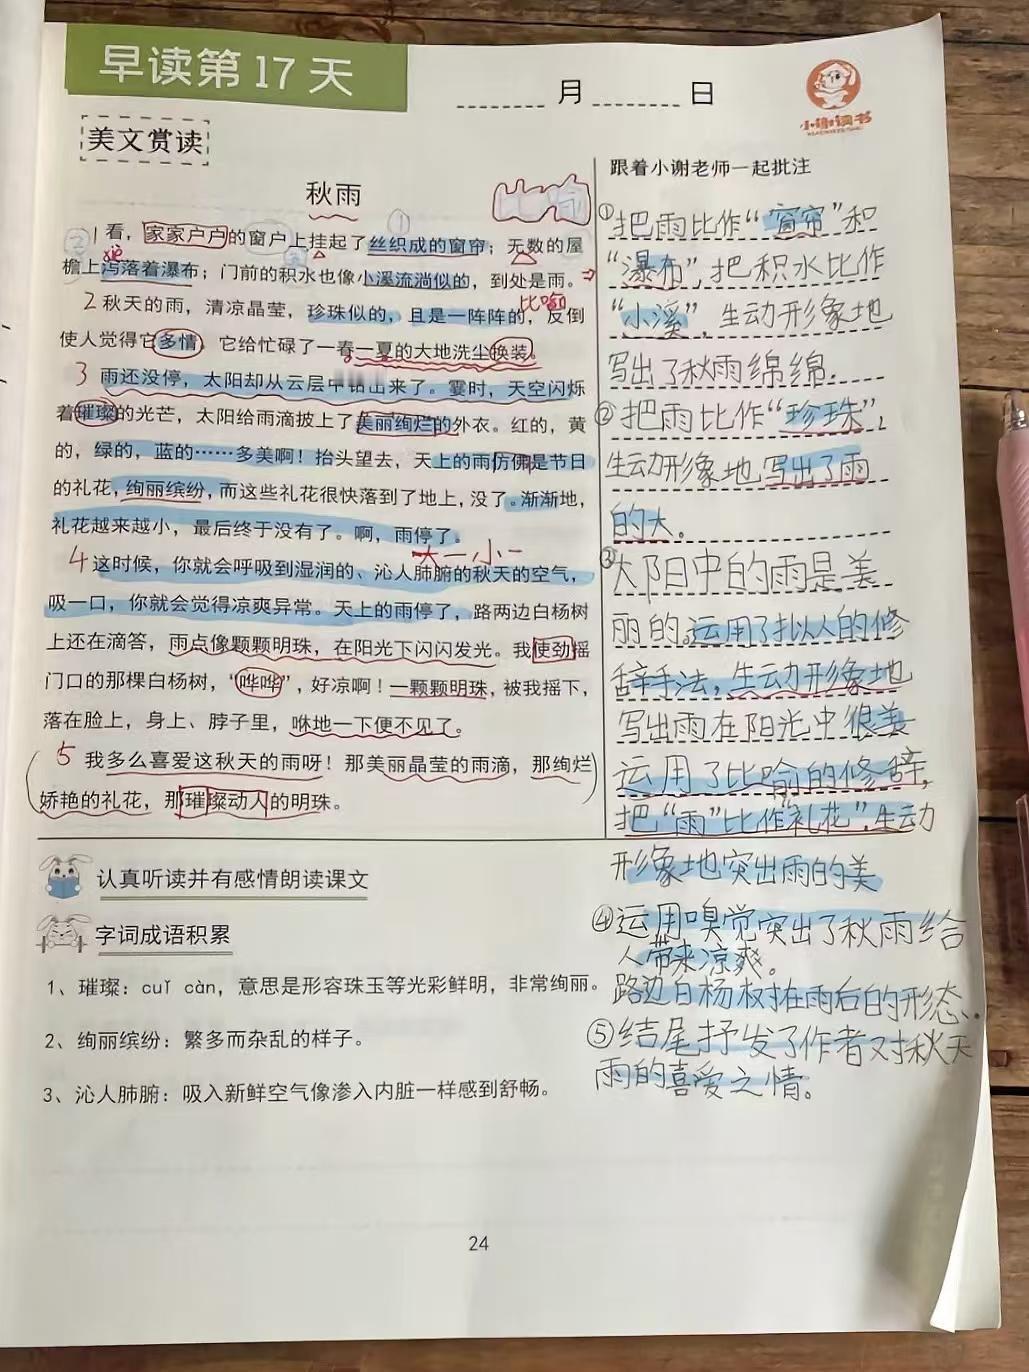 早读第 17 天
月 日
小谢读书
美文赏读
跟着小谢老师一起批注
秋雨
比喻
1看，家家户户的窗户上挂起了丝织成的窗帘；无数的屋
檐上泻落着瀑布；门前的积水也像小溪流淌似的，到处是雨。
比喻
2秋天的雨，清凉晶莹，珍珠似的，且是一阵阵的，反倒
使人觉得它多情，它给忙碌了一春一夏的大地洗尘换装。
3 雨还没停，太阳却从云层中钻出来了。霎时，天空闪烁
着璀璨的光芒，太阳给雨滴披上了美丽绚烂的外衣。红的，黄
的，绿的，蓝的……多美啊！抬头望去，天上的雨仿佛是节日
的礼花，绚丽缤纷，而这些礼花很快落到了地上，没了。渐渐地，
礼花越来越小，最后终于没有了。啊，雨停了。
大一小一
4这时候，你就会呼吸到湿润的、沁人肺腑的秋天的空气，
吸一口，你就会觉得凉爽异常。天上的雨停了，路两边白杨树
上还在滴答，雨点像颗颗明珠，在阳光下闪闪发光。我使劲摇
门口的那棵白杨树，“哗哗”，好凉啊！一颗颗明珠，被我摇下，
落在脸上，身上、脖子里，咻地一下便不见了。
5 我多么喜爱这秋天的雨呀！那美丽晶莹的雨滴，那绚烂
娇艳的礼花，那璀璨动人的明珠。
①把雨比作“窗帘”和
“瀑布”，把积水比作
“小溪”，生动形象地
写出了秋雨绵绵.
②把雨比作“珍珠”，
生动形象地写出了雨
的大.
③太阳中的雨是美
丽的。运用了拟人的修
辞手法，生动形象地
写出雨在阳光中很美
运用了比喻的修辞，
把“雨”比作“礼花”，生动
形象地突出雨的美
④运用嗅觉突出了秋雨给
人带来凉爽。
路边白杨树在雨后的形态.
⑤结尾抒发了作者对秋天
雨的喜爱之情。
认真听读并有感情朗读课文
字词成语积累
1、璀璨：cuǐ càn，意思是形容珠玉等光彩鲜明，非常绚丽。
2、绚丽缤纷：繁多而杂乱的样子。
3、沁人肺腑：吸入新鲜空气像渗入内脏一样感到舒畅。
24